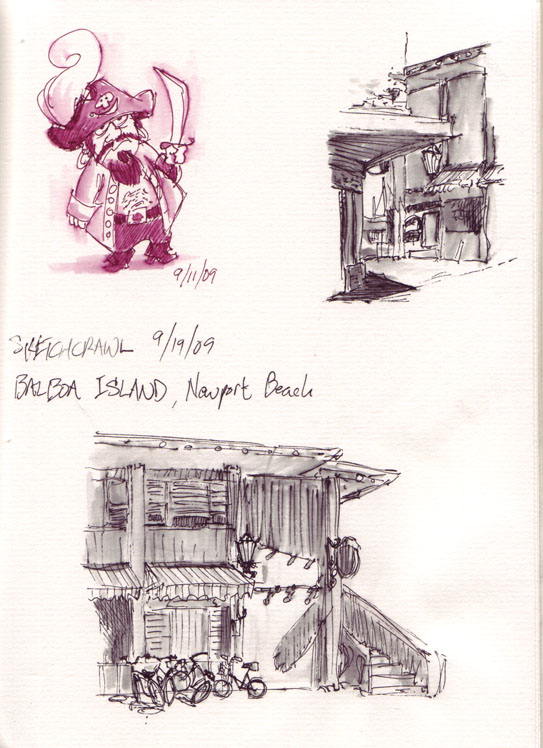 9/11/09
SKETCHCRAWL 9/19/09
BALBOA ISLAND, Newport Beach